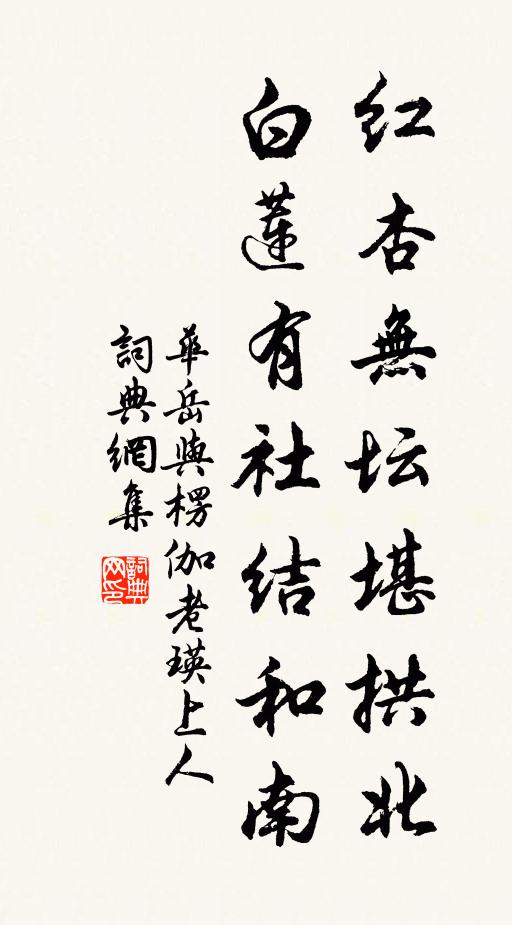 红杏無坛堪拱北
白蓮有社结和南
華岳與楞伽老瑛上人
詞典網集
詞典网印